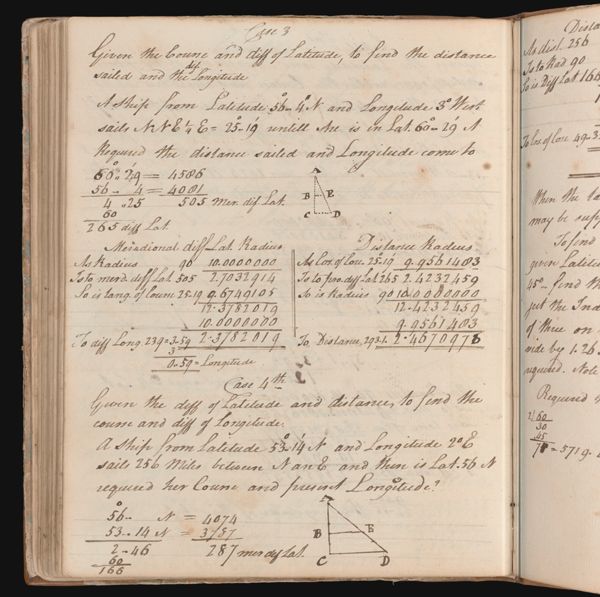 Case 3
Given the Course and diff of Latitude, to find the distance
sailed and the dif Longitude
A Ship from Latitude 56°-4' N and Longitude 3° West
sails NNE¼E = 25°-19' untill she is in Lat. 60°-29' N
Required the distance sailed and Longitude come to
60°.29 = 4586
56- 4 = 4081
4.25 505 Mer. dif. Lat.
60
265 diff Lat.
A
B E
C D
Meridional diff Lat. Radius
As Radius 90 10.0000000
Is to merd. diff Lat. 505 2.7032914
So is tang. of Course 25-19 9.6749105
12.3782019
10.0000000
To diff Long. 239=3-59 2.3782019
3
0-59 = Longitude
Distance Radius
As Cos. of Cours. 25°.19' 9.9561483
Is to pro. diff Lat 265 2.4232459
So is Radius 90 10.0000000
12.4232459
9.9561483
To Distance, 293.1. 2.4670976
Case 4th
Given the diff of Latitude and distance, to find the
course and diff of Longitude.
A Ship from Latitude 53°.14' N and Longitude 2° E
sails 256 Miles between N an E and then is Lat. 56 N
required her Course and present Longitude?
56- N = 4074
53.. 14 N = 3787
2-46 287 mer diff Lat.
60
166
A
B E
C D
Dista
As dist. 256
Is to Rad 90
So is Diff Lat 166
To Cos. of Cors 49-3
When the
may be supp
To find
given Latitud
45° find th
get the
of three on
vide by 1.26
required. Note
Required
60
30
45
= 5719.